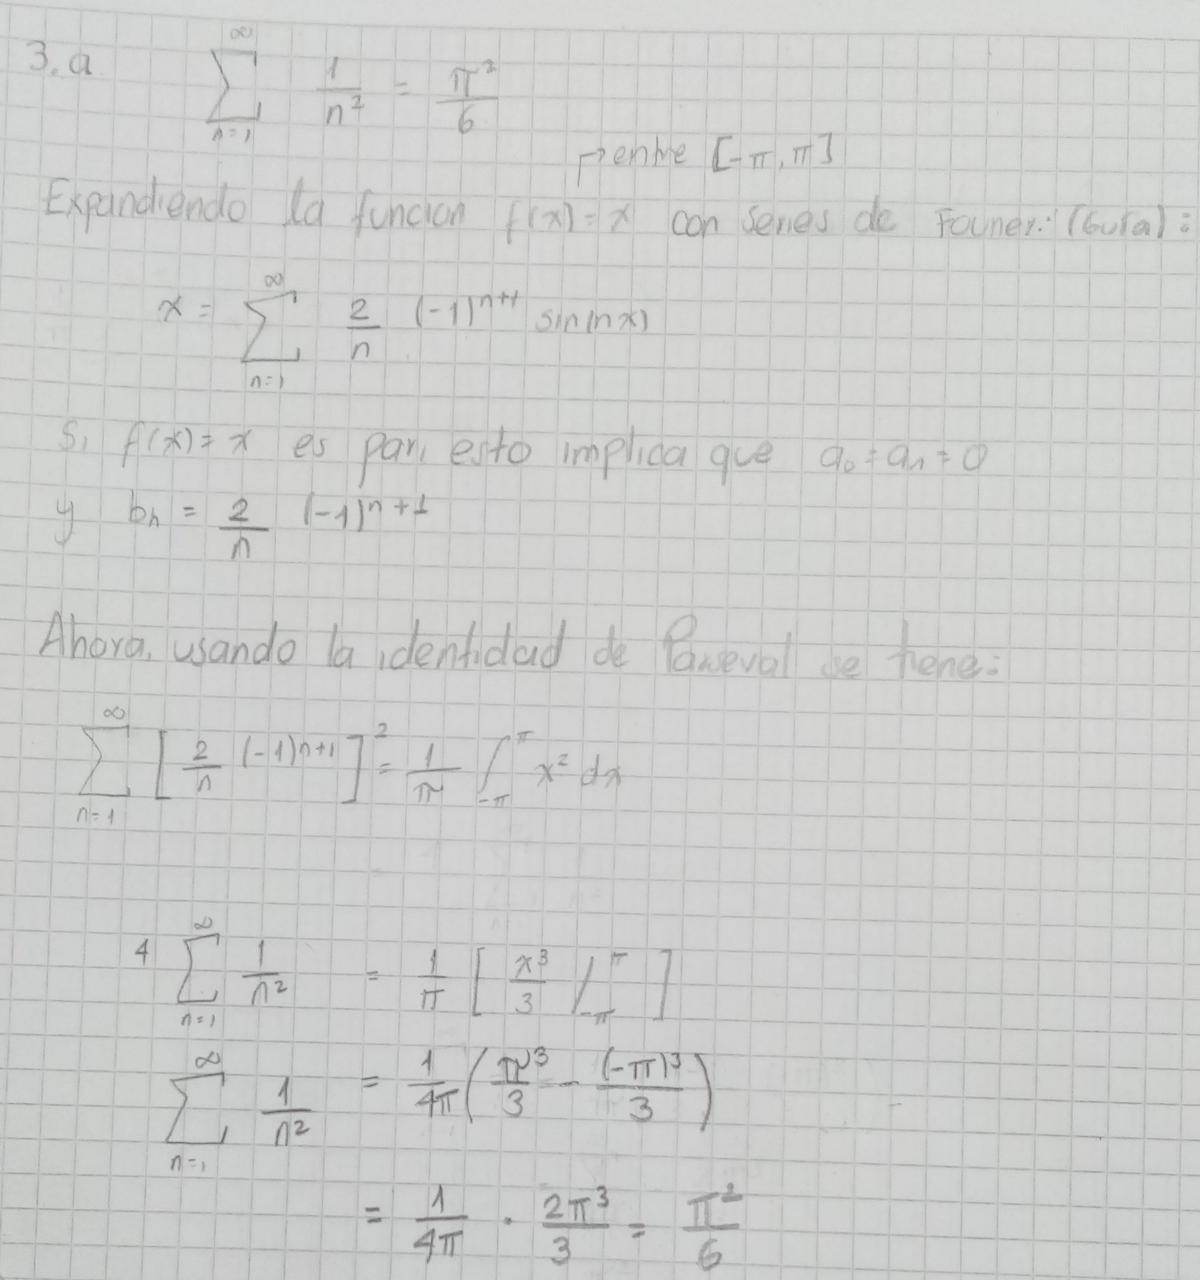 3.a ∑_{n=1}^{∞} 1/n² = π²/6
entre [-π, π]
Expandiendo la funcion f(x)=x con series de Fourier: (Guía):
x = ∑_{n=1}^{∞} 2/n (-1)^{n+1} sin(nx)
Si f(x)=x es par, esto implica que a₀=aₙ=0
y bₙ = 2/n (-1)^{n+1}
Ahora, usando la identidad de Parseval se tiene:
∑_{n=1}^{∞} [2/n (-1)^{n+1}]² = 1/π ∫_{-π}^{π} x² dx
4 ∑_{n=1}^{∞} 1/n² = 1/π [x³/3 |_{-π}^{π}]
∑_{n=1}^{∞} 1/n² = 1/4π (π³/3 - (-π)³/3)
= 1/4π · 2π³/3 = π²/6